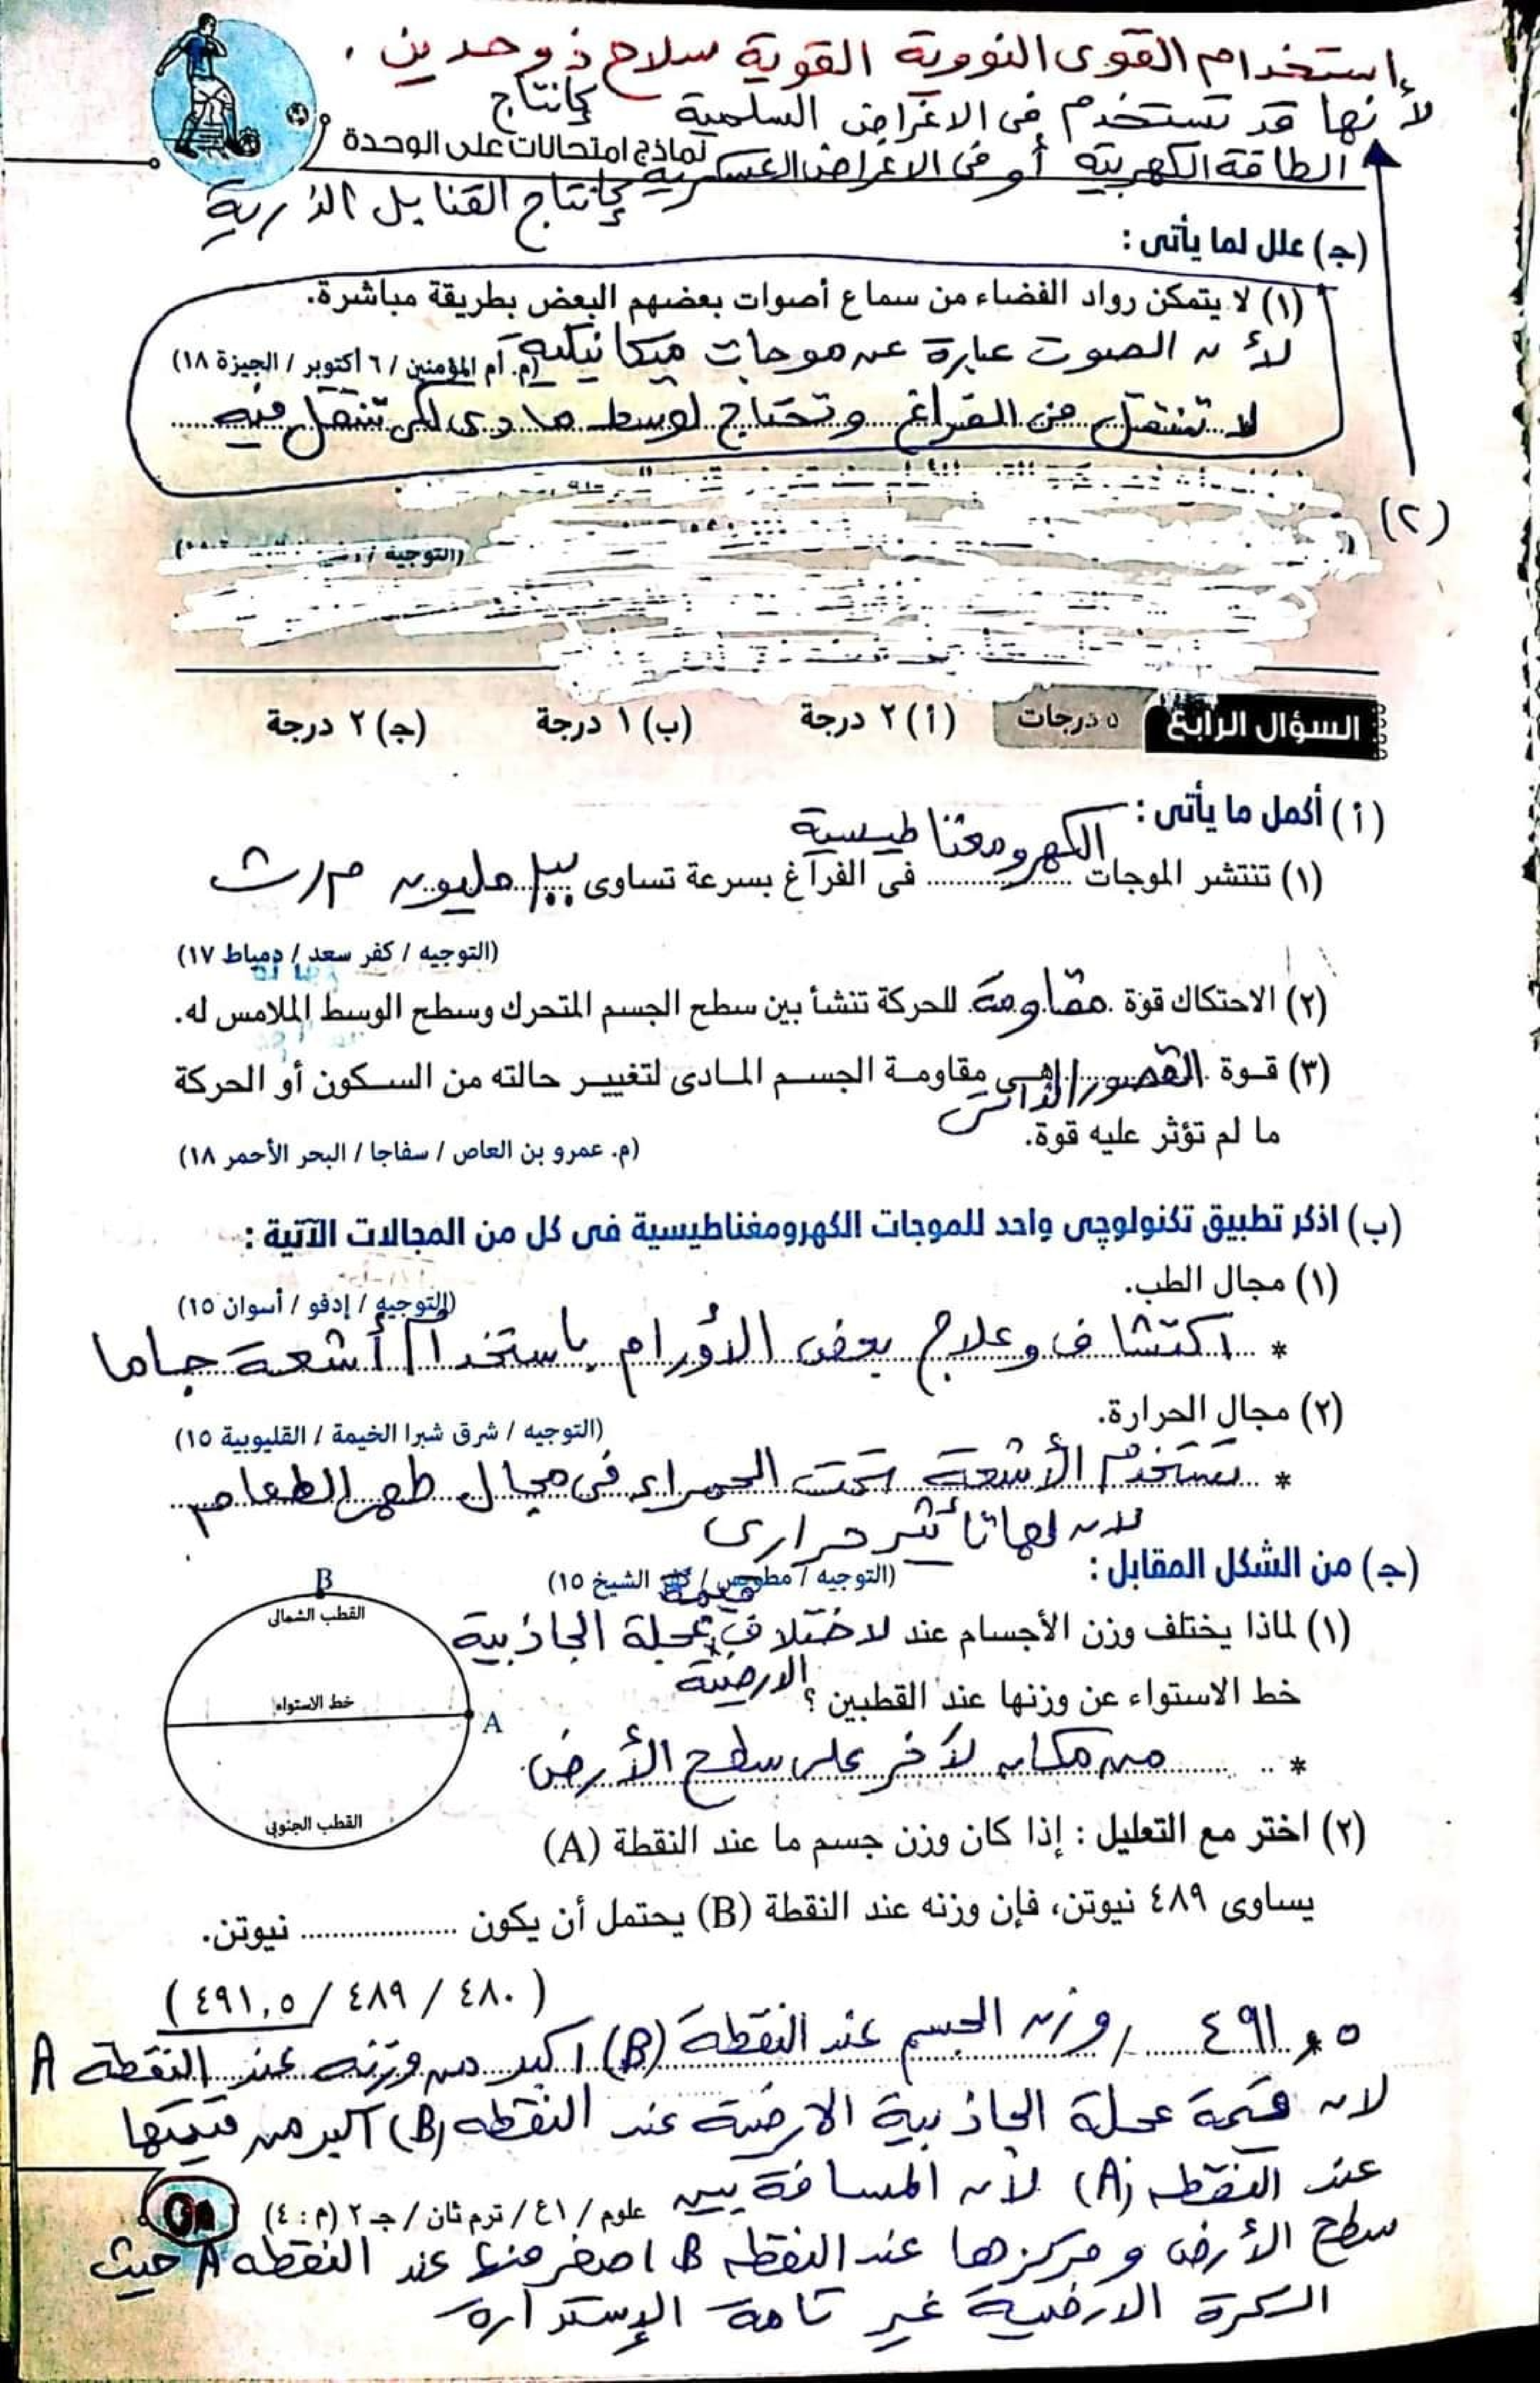 إستخدام القوى النووية القوية سلاح ذو حدين .
لأنها قد تستخدم فى الاغراض السلمية كإنتاج
نماذج امتحانات على الوحدة
الطاقة الكهربية أو فى الاغراض العسكرية
كإنتاج القنابل الذرية
(جـ) علل لما يأتى :
(١) لا يتمكن رواد الفضاء من سماع أصوات بعضهم البعض بطريقة مباشرة.
لأن الصوت عبارة عن موجات ميكانيكية
(م. أم المؤمنين / ٦ أكتوبر / الجيزة ١٨)
لا تنتقل فى الفراغ وتحتاج لوسط مادى لكى تنتقل فيه
(٢)
(التوجيه /
السؤال الرابع ٥ درجات (أ) ٢ درجة (ب) ١ درجة (جـ) ٢ درجة
(أ) أكمل ما يأتى :
(١) تنتشر الموجات الكهرومغناطيسية فى الفراغ بسرعة تساوى ٣٠٠ مليون م/ث
(التوجيه / كفر سعد / دمياط ١٧)
(٢) الاحتكاك قوة مقاومة للحركة تنشأ بين سطح الجسم المتحرك وسطح الوسط الملامس له.
(٣) قوة القصور الذاتى هى مقاومة الجسم المادى لتغيير حالته من السكون أو الحركة
ما لم تؤثر عليه قوة.
(م. عمرو بن العاص / سفاجا / البحر الأحمر ١٨)
(ب) اذكر تطبيق تكنولوچى واحد للموجات الكهرومغناطيسية فى كل من المجالات الآتية :
(١) مجال الطب.
(التوجيه / إدفو / أسوان ١٥)
* اكتشاف وعلاج بعض الأورام باستخدام أشعة جاما
(٢) مجال الحرارة.
(التوجيه / شرق شبرا الخيمة / القليوبية ١٥)
* تستخدم الأشعة تحت الحمراء فى مجال طهى الطعام
لان لها تأثير حرارى
(جـ) من الشكل المقابل :
(التوجيه / مطوبس / كفر الشيخ ١٥)
B
القطب الشمالى
خط الاستواء
A
القطب الجنوبى
(١) لماذا يختلف وزن الأجسام عند لاختلاف قيمة عجلة الجاذبية
خط الاستواء عن وزنها عند القطبين ؟ الارضية
* من مكان لآخر على سطح الأرض
(٢) اختر مع التعليل : إذا كان وزن جسم ما عند النقطة (A)
يساوى ٤٨٩ نيوتن، فإن وزنه عند النقطة (B) يحتمل أن يكون .................. نيوتن.
(٤٨٠ / ٤٨٩ / ٤٩١,٥)
٤٩١,٥ / وزن الجسم عند النقطة (B) اكبر من وزنه عند النقطة A
لان قيمة عجلة الجاذبية الارضية عند النقطه (B) اكبر من قيمتها
عند النقطه (A) لأن المسافة بين
علوم / ١ع / ترم ثان / جـ ٢ (م : ٤)
سطح الأرض ومركزها عند النقطه B اصغر منها عند النقطه A حيث
الكرة الارضية غير تامة الإستدارة